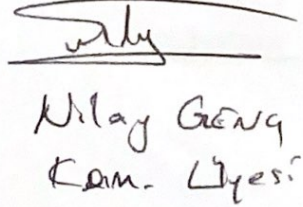 Nilay GENÇ
Kom. Üyesi